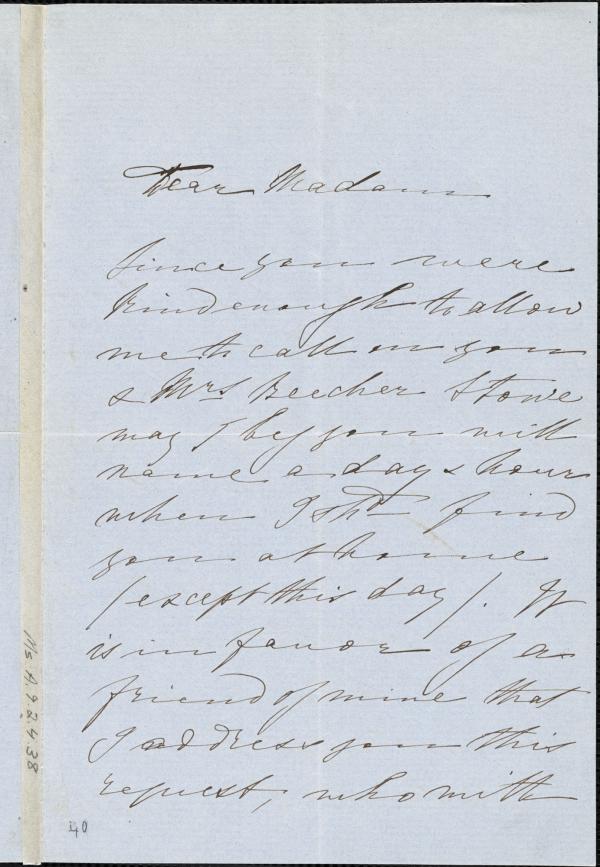 Dear Madam
Since you were
kind enough to allow
me to call on you
& Mrs Beecher Stowe
may I beg you will
name a day & hour
when I shd find
you at home
(except this day). It
is in favor of a
friend of mine that
I address you this
request, who with
40
Ms. A.9.2.4.38